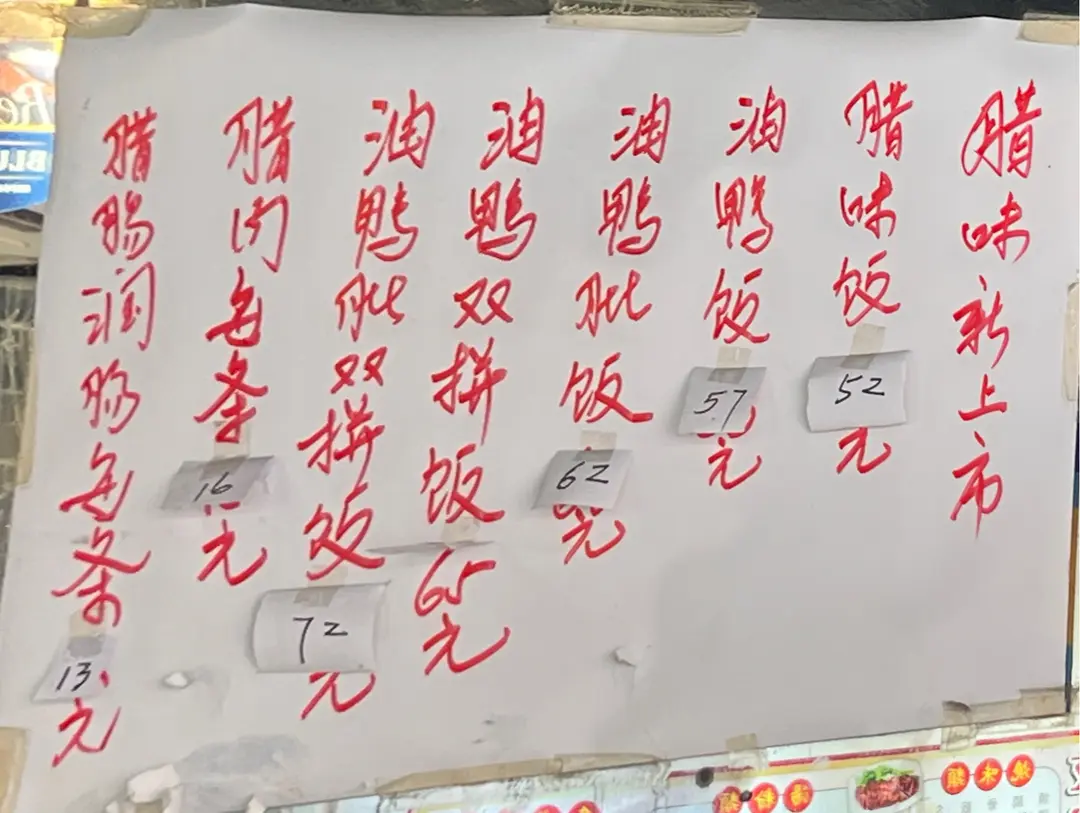 腊味新上市
腊味饭52元
油鸭饭57元
油鸭肶饭62元
油鸭双拼饭65元
油鸭肶双拼饭72元
腊肉每条16元
腊肠润肠每条13元
BLU